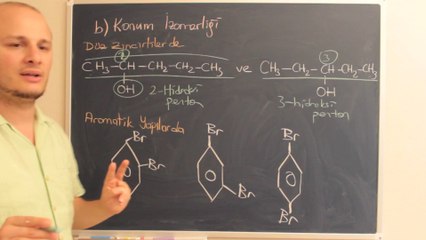 b) Konum İzomerliği
Düz Zincirlilerde
2
3
CH₃-CH-CH₂-CH₂-CH₃ ve CH₃-CH₂-CH-CH₂-CH₃
OH
OH
2-Hidroksi pentan
3-hidroksi pentan
Aromatik Yapılarda
Br
Br
Br
Br
Br
Br